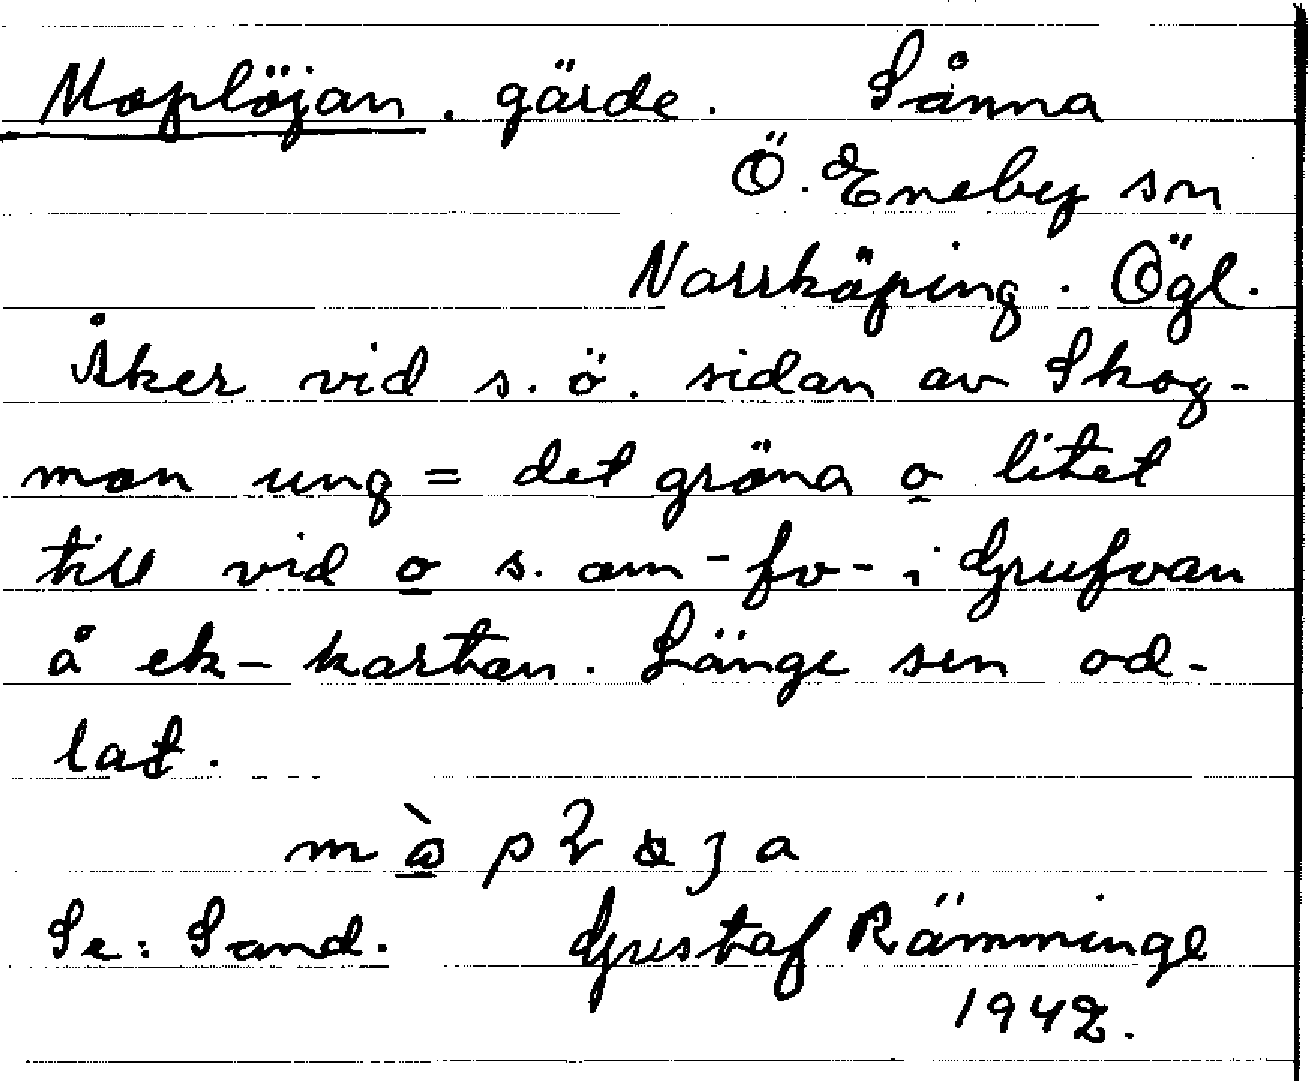 Moplöjan. gärde. Sånna
Ö. Eneby sn
Norrköping. Ögl.
Åker vid s. ö. sidan av Skog-
mon ung = det gröna o litet
till vid o s. om - fv - i Grufvan
å ek-kartan. Länge sen od-
lat.
Se: Sand. Gustaf Rämminge
1942.